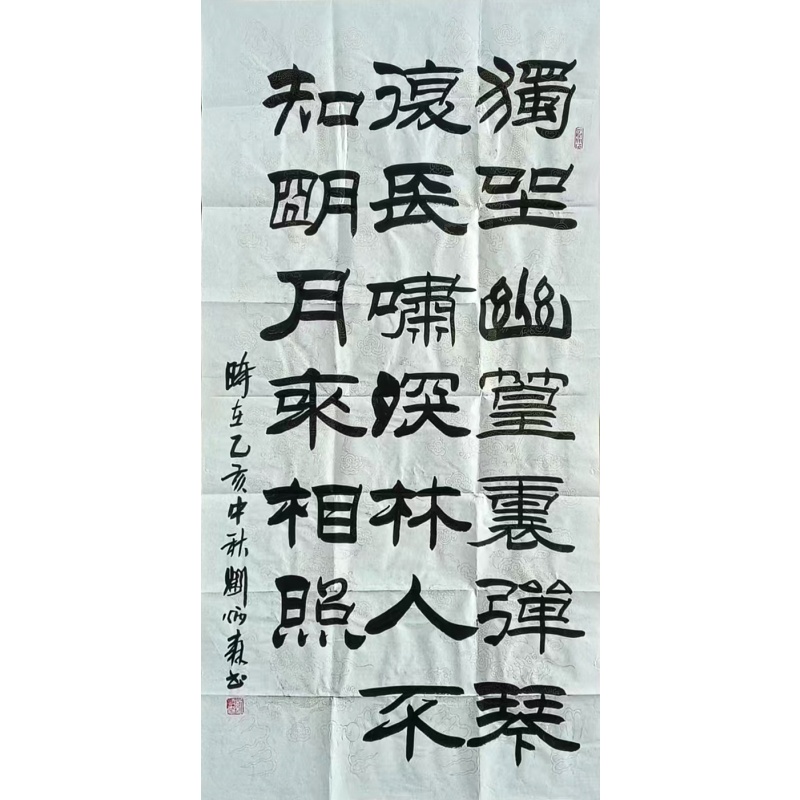 獨坐幽篁裏彈琴
復長嘯深林人不
知明月來相照
時在乙亥中秋劉炳森書